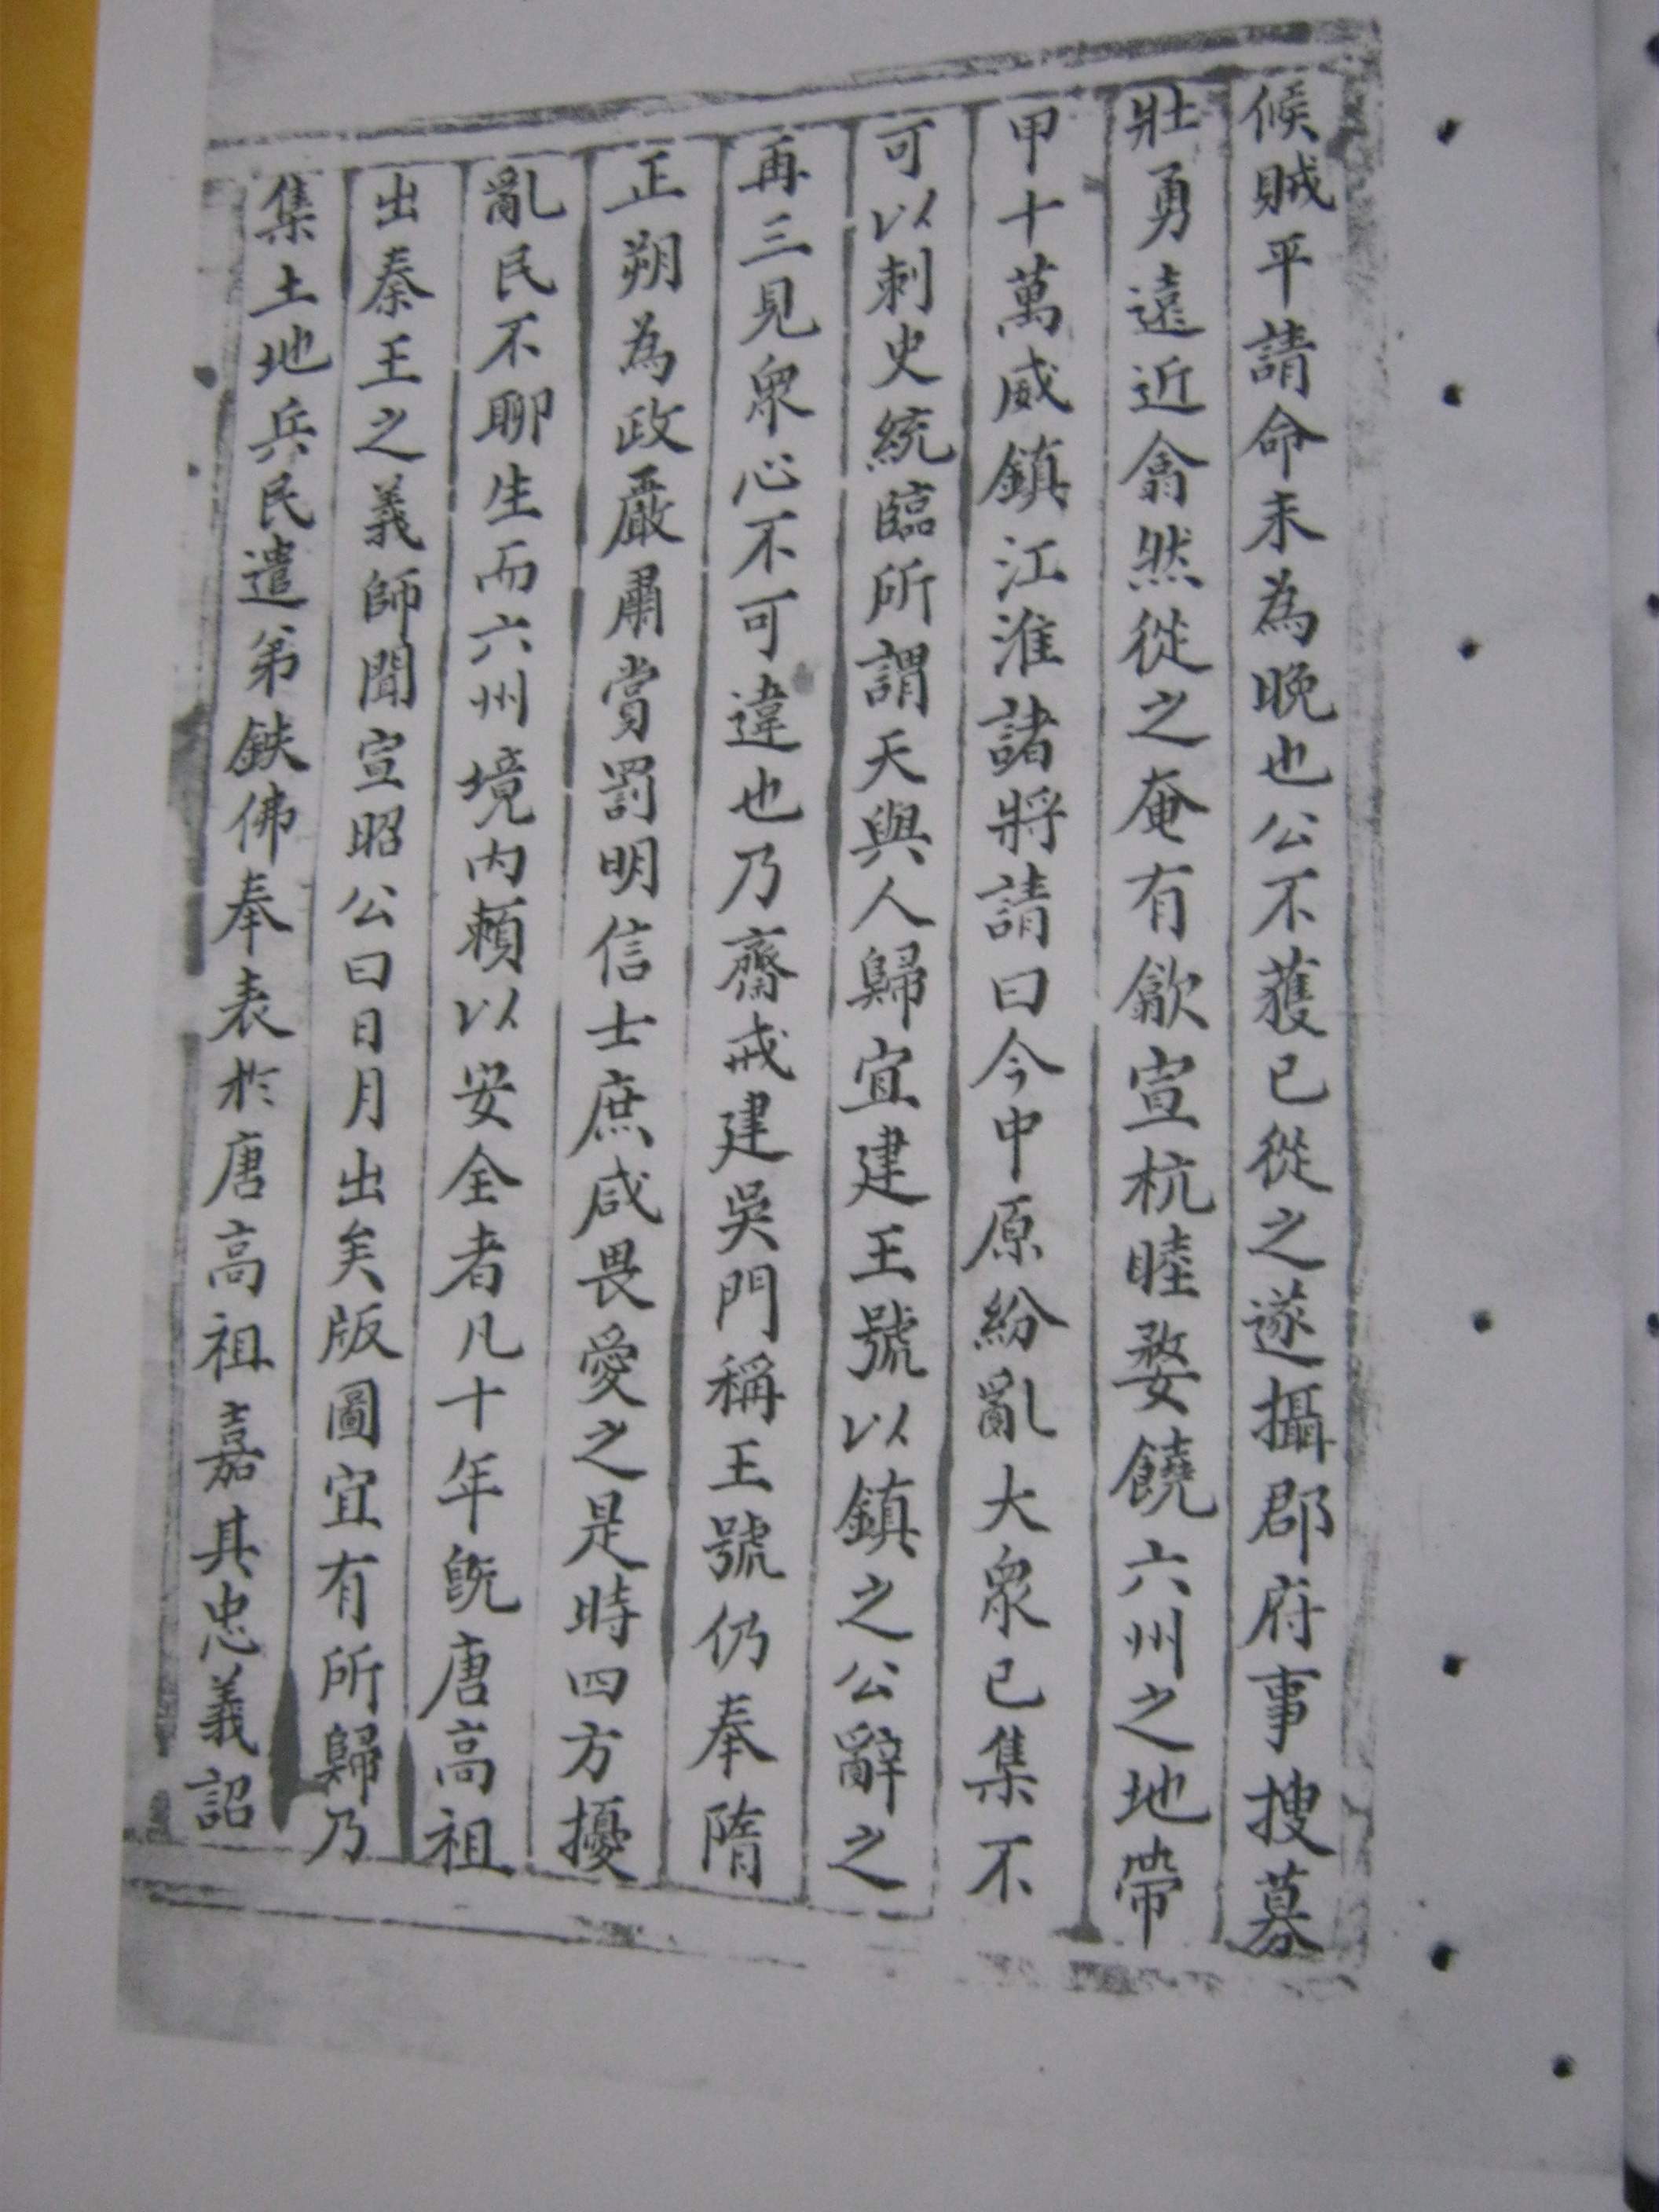 候賊平請命未為晚也公不獲已從之遂攝郡府事搜募
壯勇遠近翕然從之奄有歙宣杭睦婺饒六州之地帶
甲十萬威鎮江淮諸將請曰今中原紛亂大衆已集不
可以刺史統臨所謂天與人歸宜建王號以鎮之公辭之
再三見衆心不可違也乃齋戒建吳門稱王號仍奉隋
正朔為政嚴肅賞罰明信士庶咸畏愛之是時四方擾
亂民不聊生而六州境内賴以安全者凡十年旣唐高祖
出秦王之義師聞宣昭公曰日月出矣版圖宜有所歸乃
集土地兵民遣弟鉄佛奉表於唐高祖嘉其忠義詔